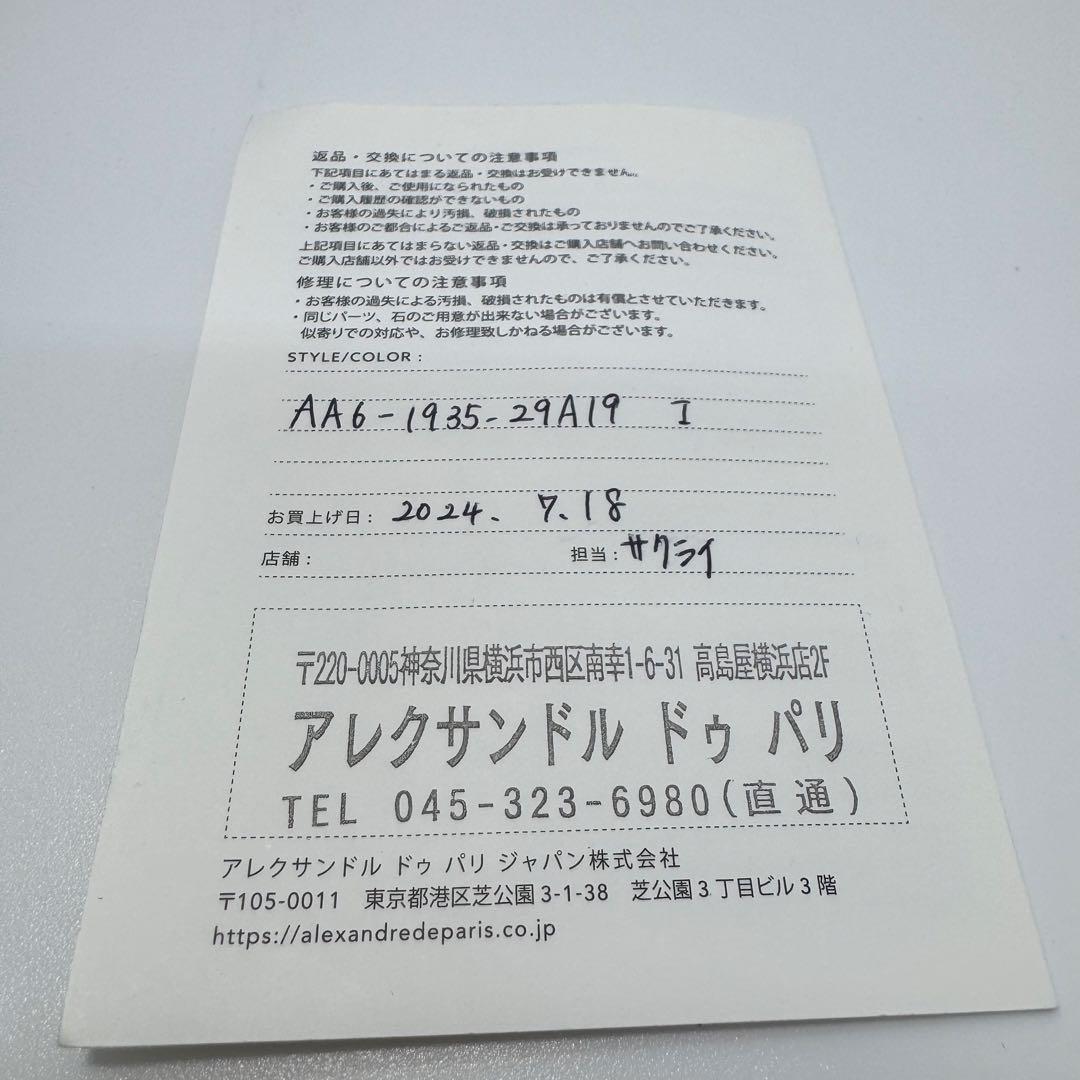 返品・交換についての注意事項
下記項目にあてはまる返品・交換はお受けできません。
・ご購入後、ご使用になられたもの
・ご購入履歴の確認ができないもの
・お客様の過失により汚損、破損されたもの
・お客様のご都合によるご返品・ご交換は承っておりませんのでご了承ください。
上記項目にあてはまらない返品・交換はご購入店舗へお問い合わせください。
ご購入店舗以外ではお受けできませんので、ご了承ください。
修理についての注意事項
・お客様の過失による汚損、破損されたものは有償とさせていただきます。
・同じパーツ、石のご用意が出来ない場合がございます。
似寄りでの対応や、お修理致しかねる場合がございます。
STYLE/COLOR :
AA6-1935-29A19 I
お買上げ日: 2024. 7.18
店舗: 担当: サクライ
〒220-0005神奈川県横浜市西区南幸1-6-31 高島屋横浜店2F
アレクサンドル ドゥ パリ
TEL 045-323-6980(直通)
アレクサンドル ドゥ パリ ジャパン株式会社
〒105-0011 東京都港区芝公園3-1-38 芝公園3丁目ビル3階
https://alexandredeparis.co.jp